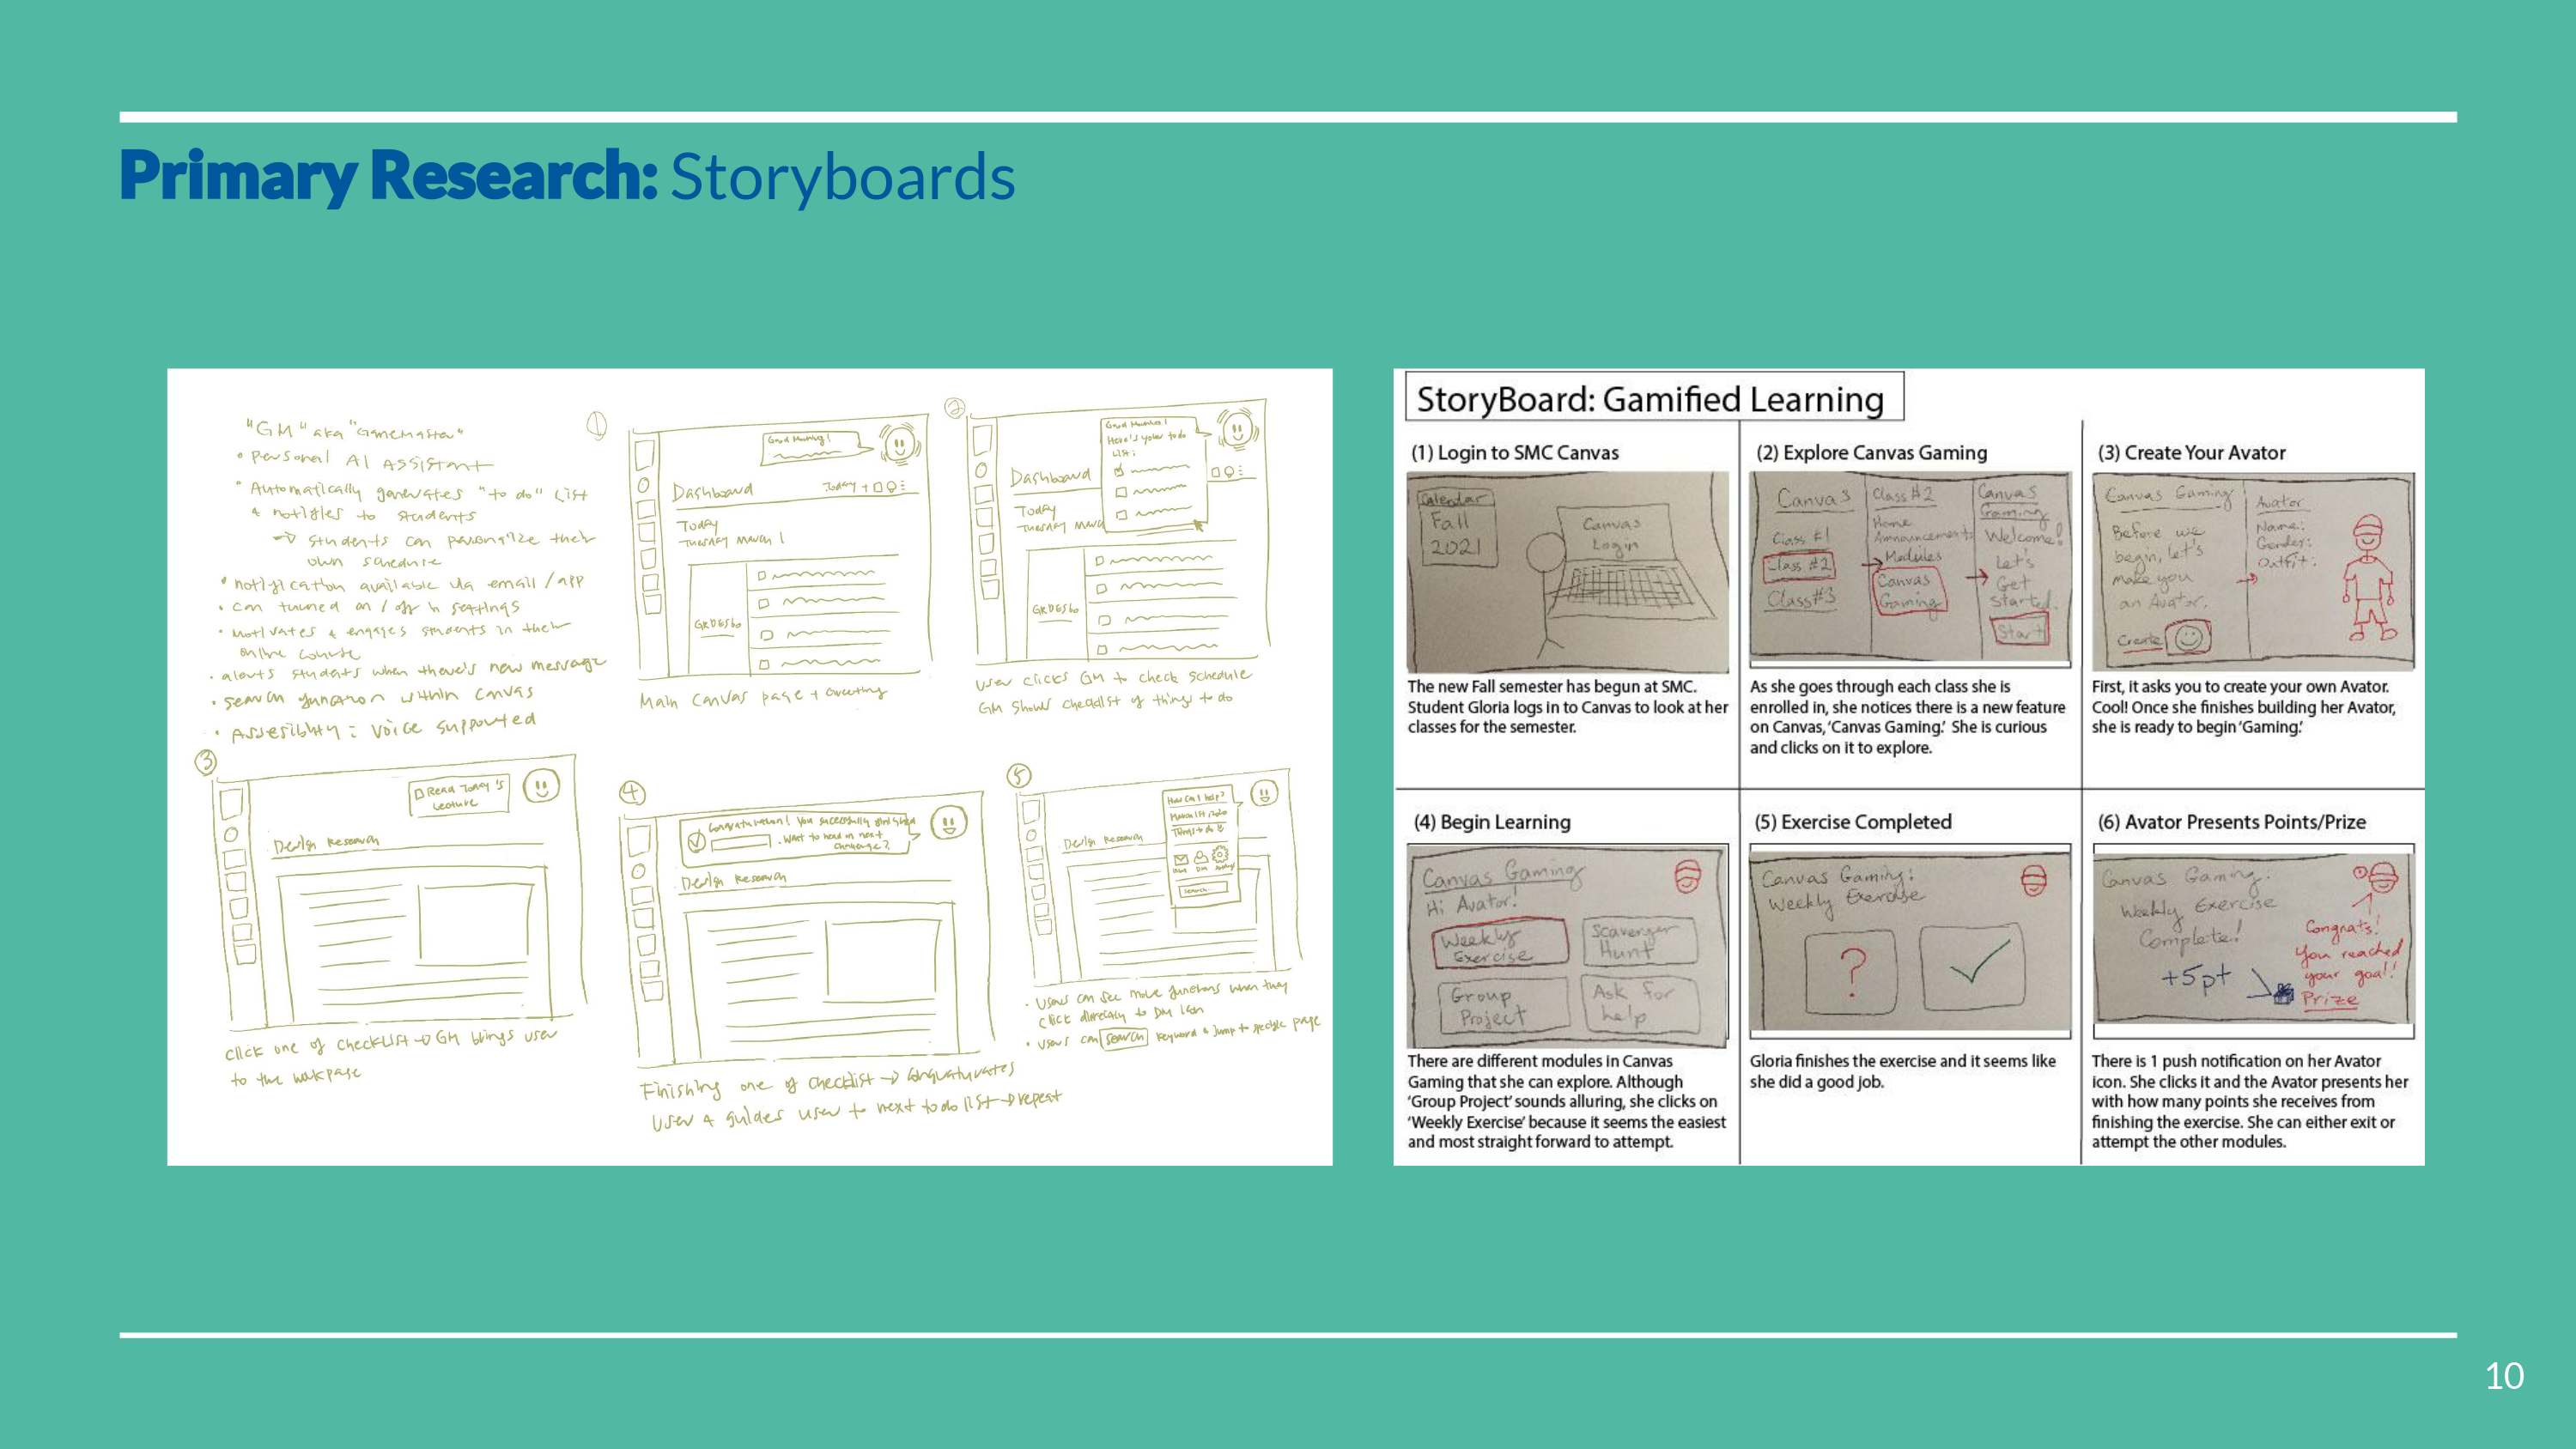 Primary Research: Storyboards
"GM" aka "Gamemaster"
• Personal AI Assistant
• Automatically generates "to do" list
& notifies to students
→ students can personalize their
own schedule
• notification available via email / app
• can turned on / off in settings
• motivates & engages students in their
online course
• alerts students when there's new message
• search function within canvas
• Assesiblity = voice supported
1
Good Morning!
Dashboard
Today +
Today
Tuesday March 1
GRDES60
Main Canvas page + Greeting
2
Good Morning!
Here's your to do
List:
Dashboard
Today
Tuesday Marc
GRDES60
User clicks GM to check schedule
GM Shows checklist of things to do
3
Read Today's
Lecture
Design Research
Click one of checklist → GM brings user
to the workpage
4
Congratulation! You successfully finished
. Want to head in next
challenge?
Design Research
Finishing one of checklist → congratulates
User & guides user to next to do list → repeat
5
How can I help?
Things to do
Search
Design Research
• Users can see more functions when they
click directly to DM Icon
• Users can search keyword & jump to specific page
StoryBoard: Gamified Learning
(1) Login to SMC Canvas
Calendar
Fall
2021
Canvas
Login
The new Fall semester has begun at SMC.
Student Gloria logs in to Canvas to look at her
classes for the semester.
(2) Explore Canvas Gaming
Canvas
Class #1
Class #2
Class #3
Class #2
Home
Announcements
Modules
Canvas
Gaming
Canvas
Gaming
Welcome!
Let's
Get
Started.
Start
As she goes through each class she is
enrolled in, she notices there is a new feature
on Canvas, 'Canvas Gaming.' She is curious
and clicks on it to explore.
(3) Create Your Avator
Canvas Gaming
Before we
begin, let's
make you
an Avator.
Create
Avator
Name:
Gender:
Outfit:
First, it asks you to create your own Avator.
Cool! Once she finishes building her Avator,
she is ready to begin 'Gaming.'
(4) Begin Learning
Canvas Gaming
Hi Avator!
Weekly
Exercise
Scavenger
Hunt
Group
Project
Ask for
help
There are different modules in Canvas
Gaming that she can explore. Although
'Group Project' sounds alluring, she clicks on
'Weekly Exercise' because it seems the easiest
and most straight forward to attempt.
(5) Exercise Completed
Canvas Gaming:
Weekly Exercise
?
Gloria finishes the exercise and it seems like
she did a good job.
(6) Avator Presents Points/Prize
Canvas Gaming.
Weekly Exercise
Complete!
+5pt
Congrats!
You reached
your goal!
Prize
There is 1 push notification on her Avator
icon. She clicks it and the Avator presents her
with how many points she receives from
finishing the exercise. She can either exit or
attempt the other modules.
10